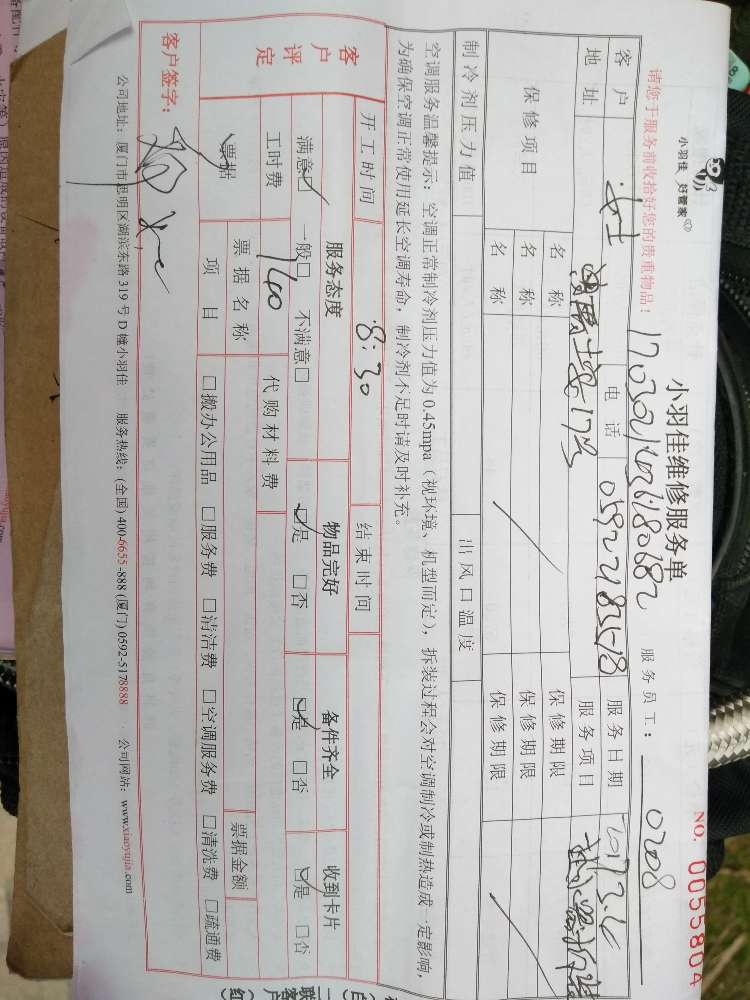 小羽佳 好管家
小羽佳维修服务单
NO. 0055804
请您于服务前收拾好您的贵重物品！
服务员工： 0208
客户 女士 电话 服务日期
地址 服务项目
保修项目 名称 保修期限
名称 保修期限
名称 保修期限
制冷剂压力值 出风口温度
空调服务温馨提示：空调正常制冷剂压力值为0.45mpa（视环境、机型而定），拆装过程会对空调制冷或制热造成一定影响，
为确保空调正常使用延长空调寿命，制冷剂不足时请及时补充。
开工时间 8:30 结束时间
客户评定 服务态度 物品完好 备件齐全 收到卡片
满意☑ 一般□ 不满意□ ☑是 □否 ☑是 □否 ☑是 □否
工时费 140 代购材料费
票据 票据名称 票据金额
项目 □搬办公用品 □服务费 □清洁费 □空调服务费 □清洗费 □疏通费
客户签字：
公司地址：厦门市思明区湖滨东路319号D幢小羽佳 服务热线：(全国)400-6655-888 (厦门)0592-5178888 公司网站：www.xiaoyujia.com